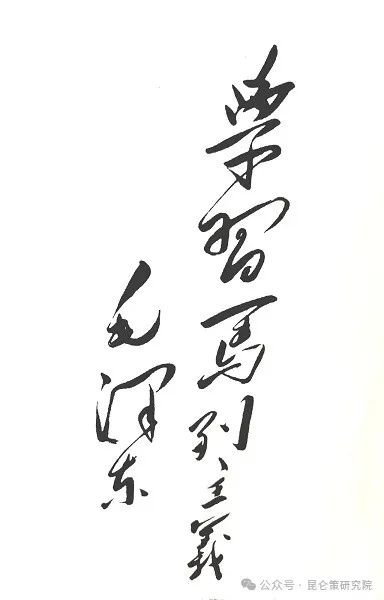 學習馬列主義
毛澤东
公众号·昆仑策研究院